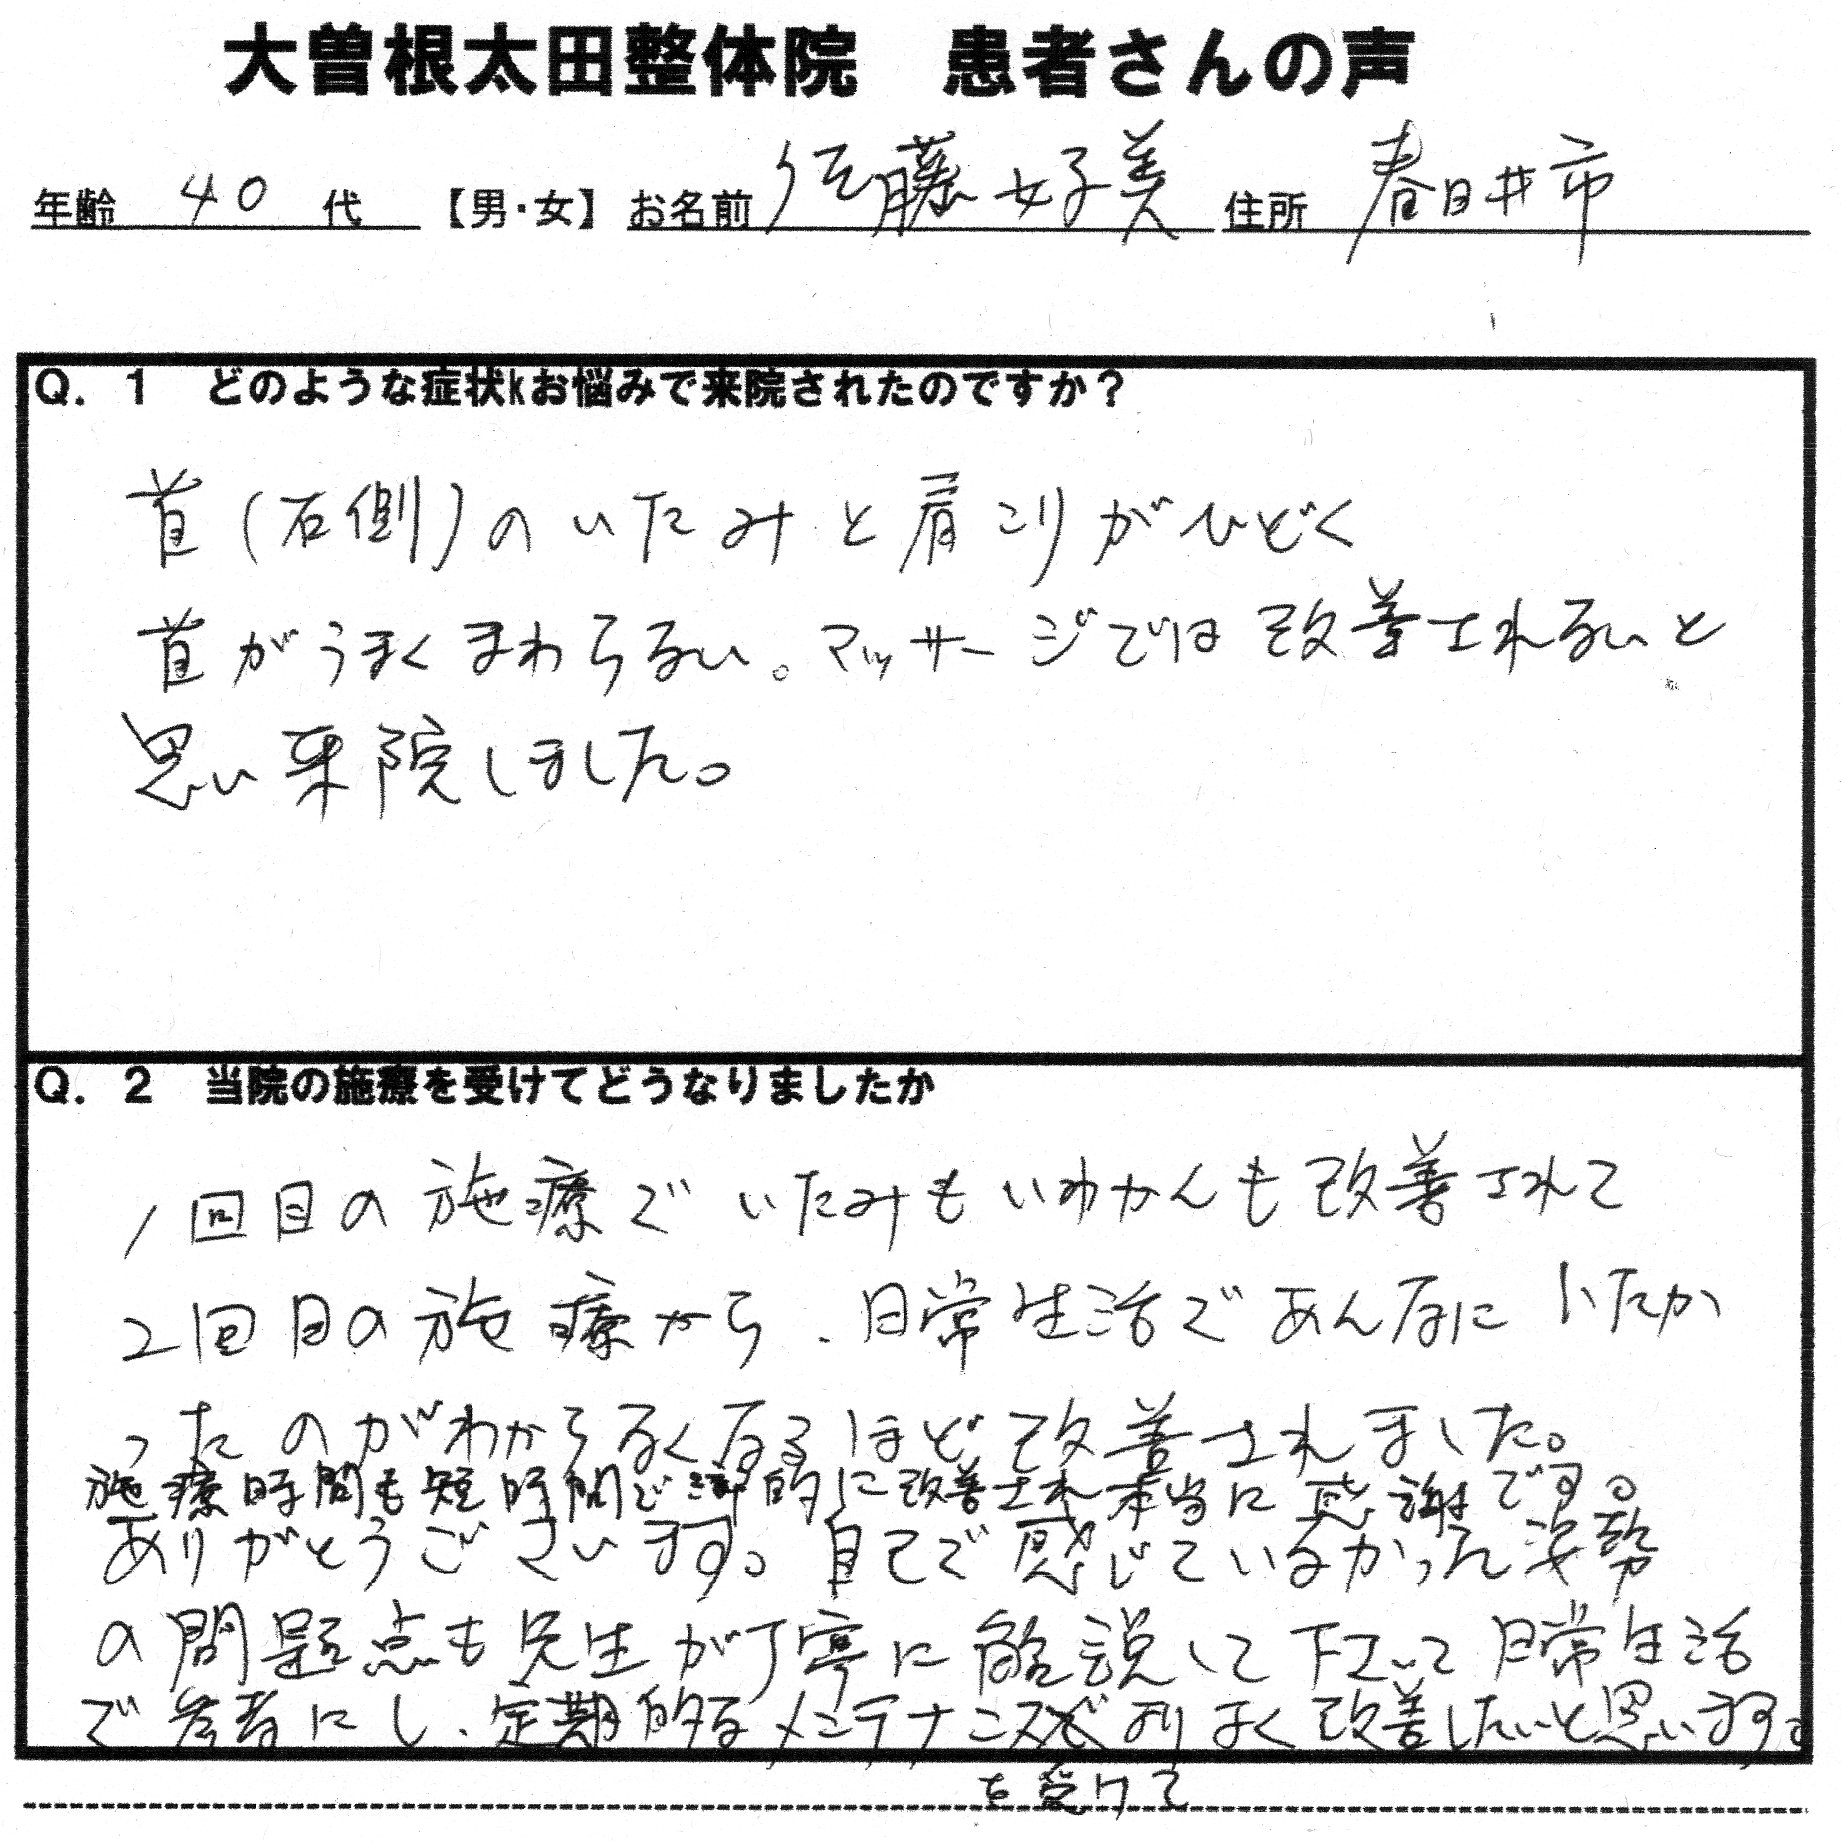 大曽根太田整体院　患者さんの声
年齢 40 代 【男・女】 お名前 佐藤好美 住所 春日井市
Q．1　どのような症状kお悩みで来院されたのですか？
首(右側)のいたみと肩こりがひどく
首がうまくまわらない。マッサージでは改善されないと
思い来院しました。
Q．2　当院の施療を受けてどうなりましたか
1回目の施療でいたみもいわかんも改善されて
2回目の施療から、日常生活であんなにいたか
ったのがわからなくなるほど改善されました。
施療時間も短時間で 的に改善され本当に感謝です。
ありがとうございます。自己で感じていなかった姿勢
の問題点も先生が丁寧に解説して下さって日常生活
で参考にし、定期的なメンテナンスで よりよく改善したいと思います。
を受けて